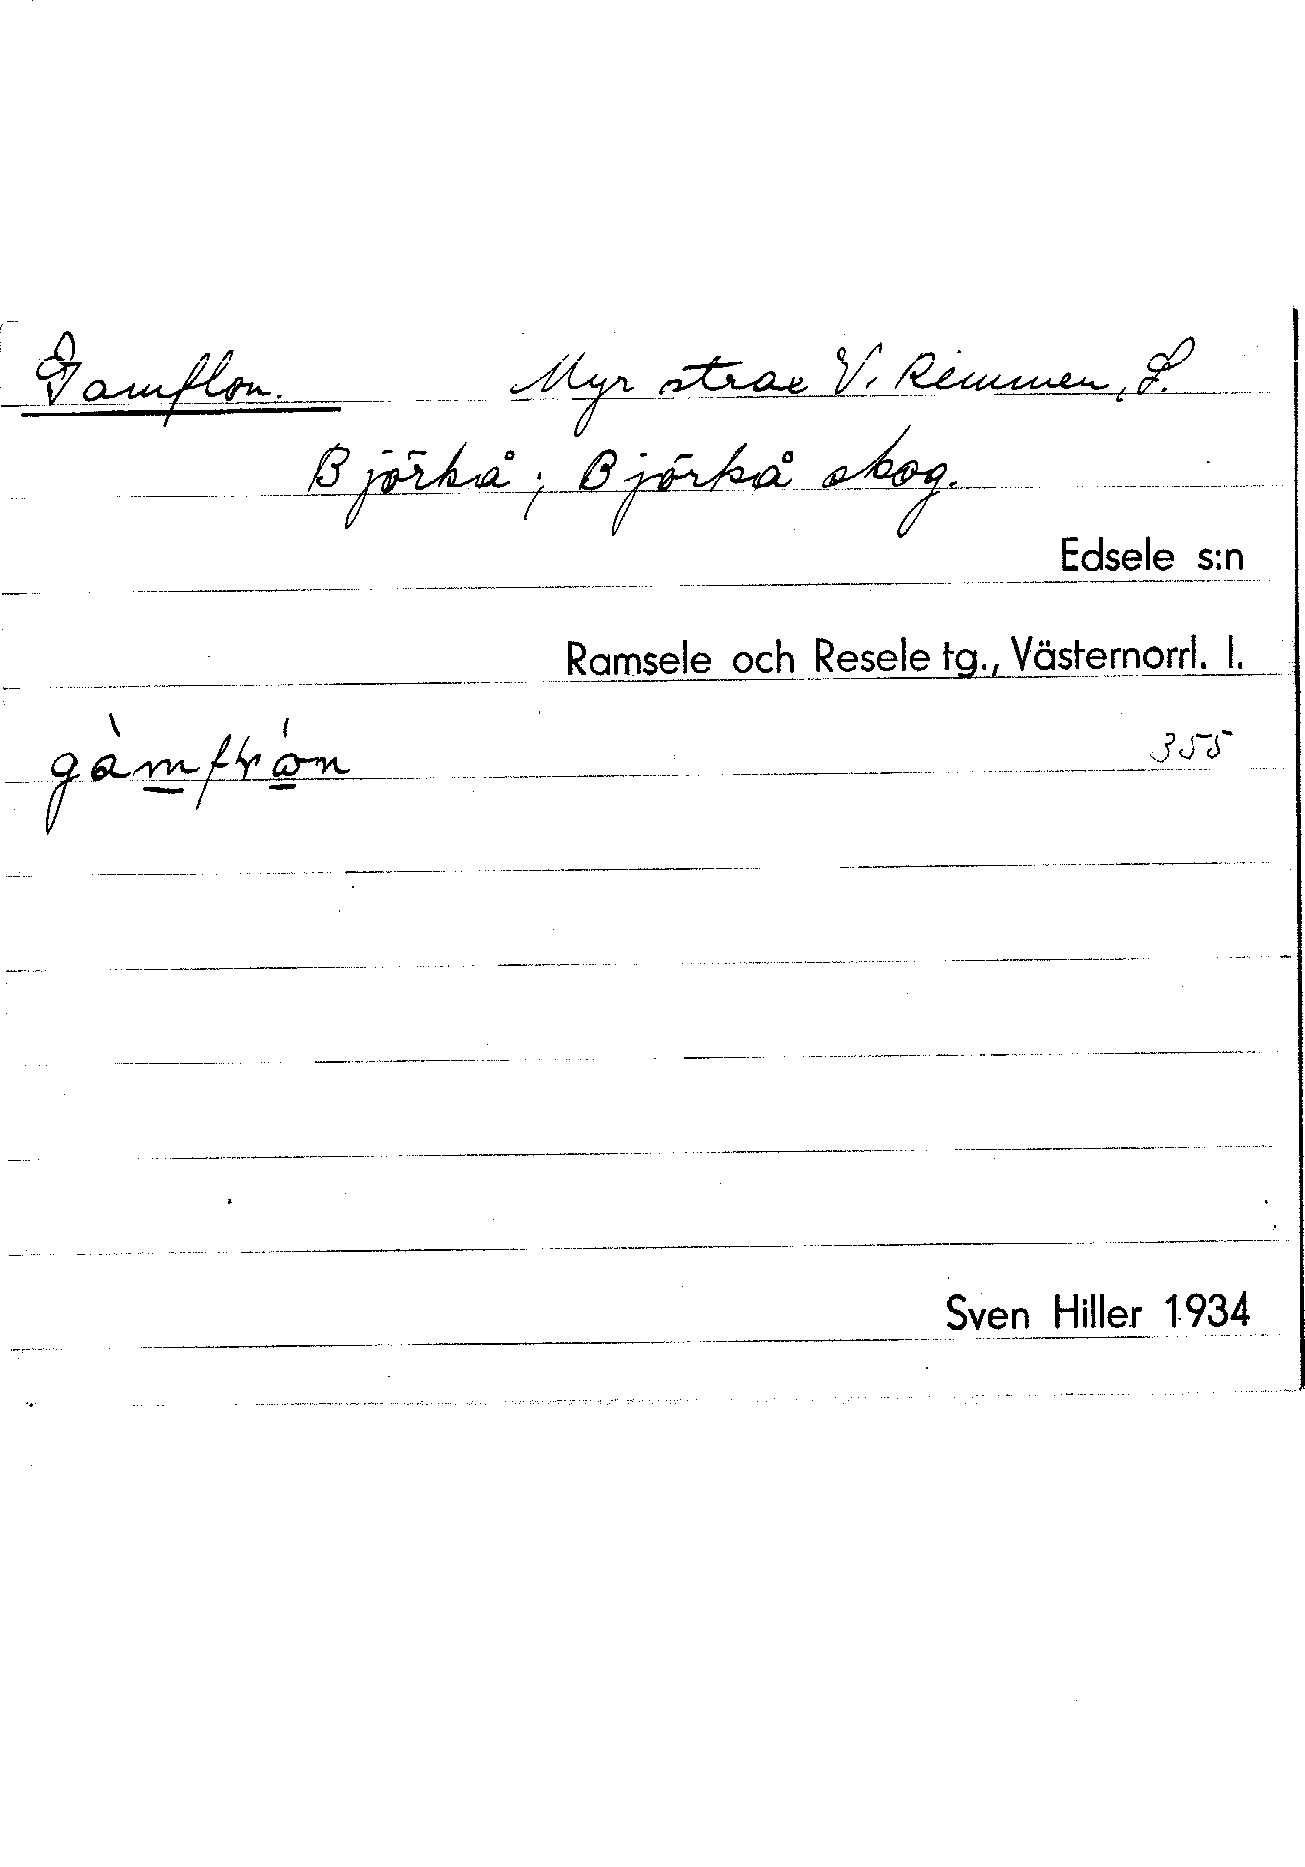 Gamflon. Myr strax V. Remmen, S.
Björkå; Björkå skog.
Edsele s:n
Ramsele och Resele tg., Västernorrl. l.
355
Sven Hiller 1934